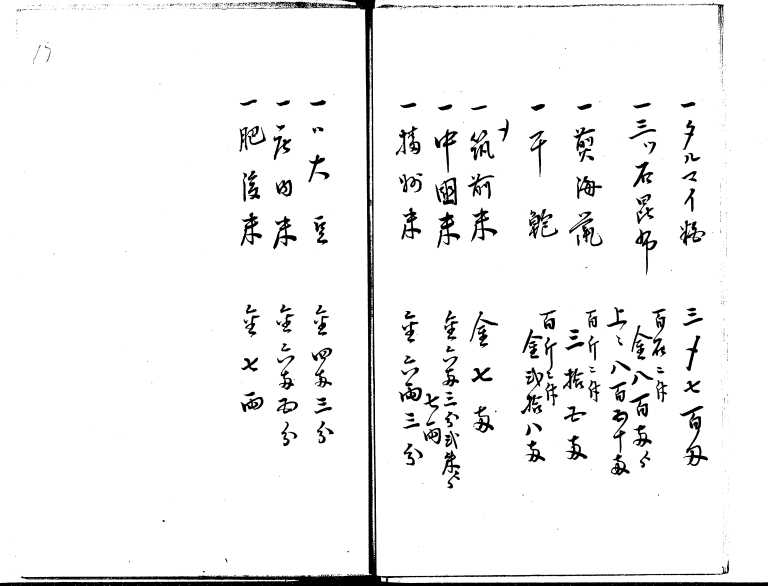 一 タルマイ粕 三メ七百匁
一 三ツ石昆布 百石ニ付 金八百両ゟ 上々八百五十両
一 煎海鼠 百斤ニ付 三拾五両
一 干鮑 百斤ニ付 金弐拾八両
一 筑前米 金七両
一 中國米 金六両三分弐朱ゟ 七両
一 播州米 金六両三分
一 〃大豆 金四両三分
一 庄内米 金六両
一 肥後米 金七両